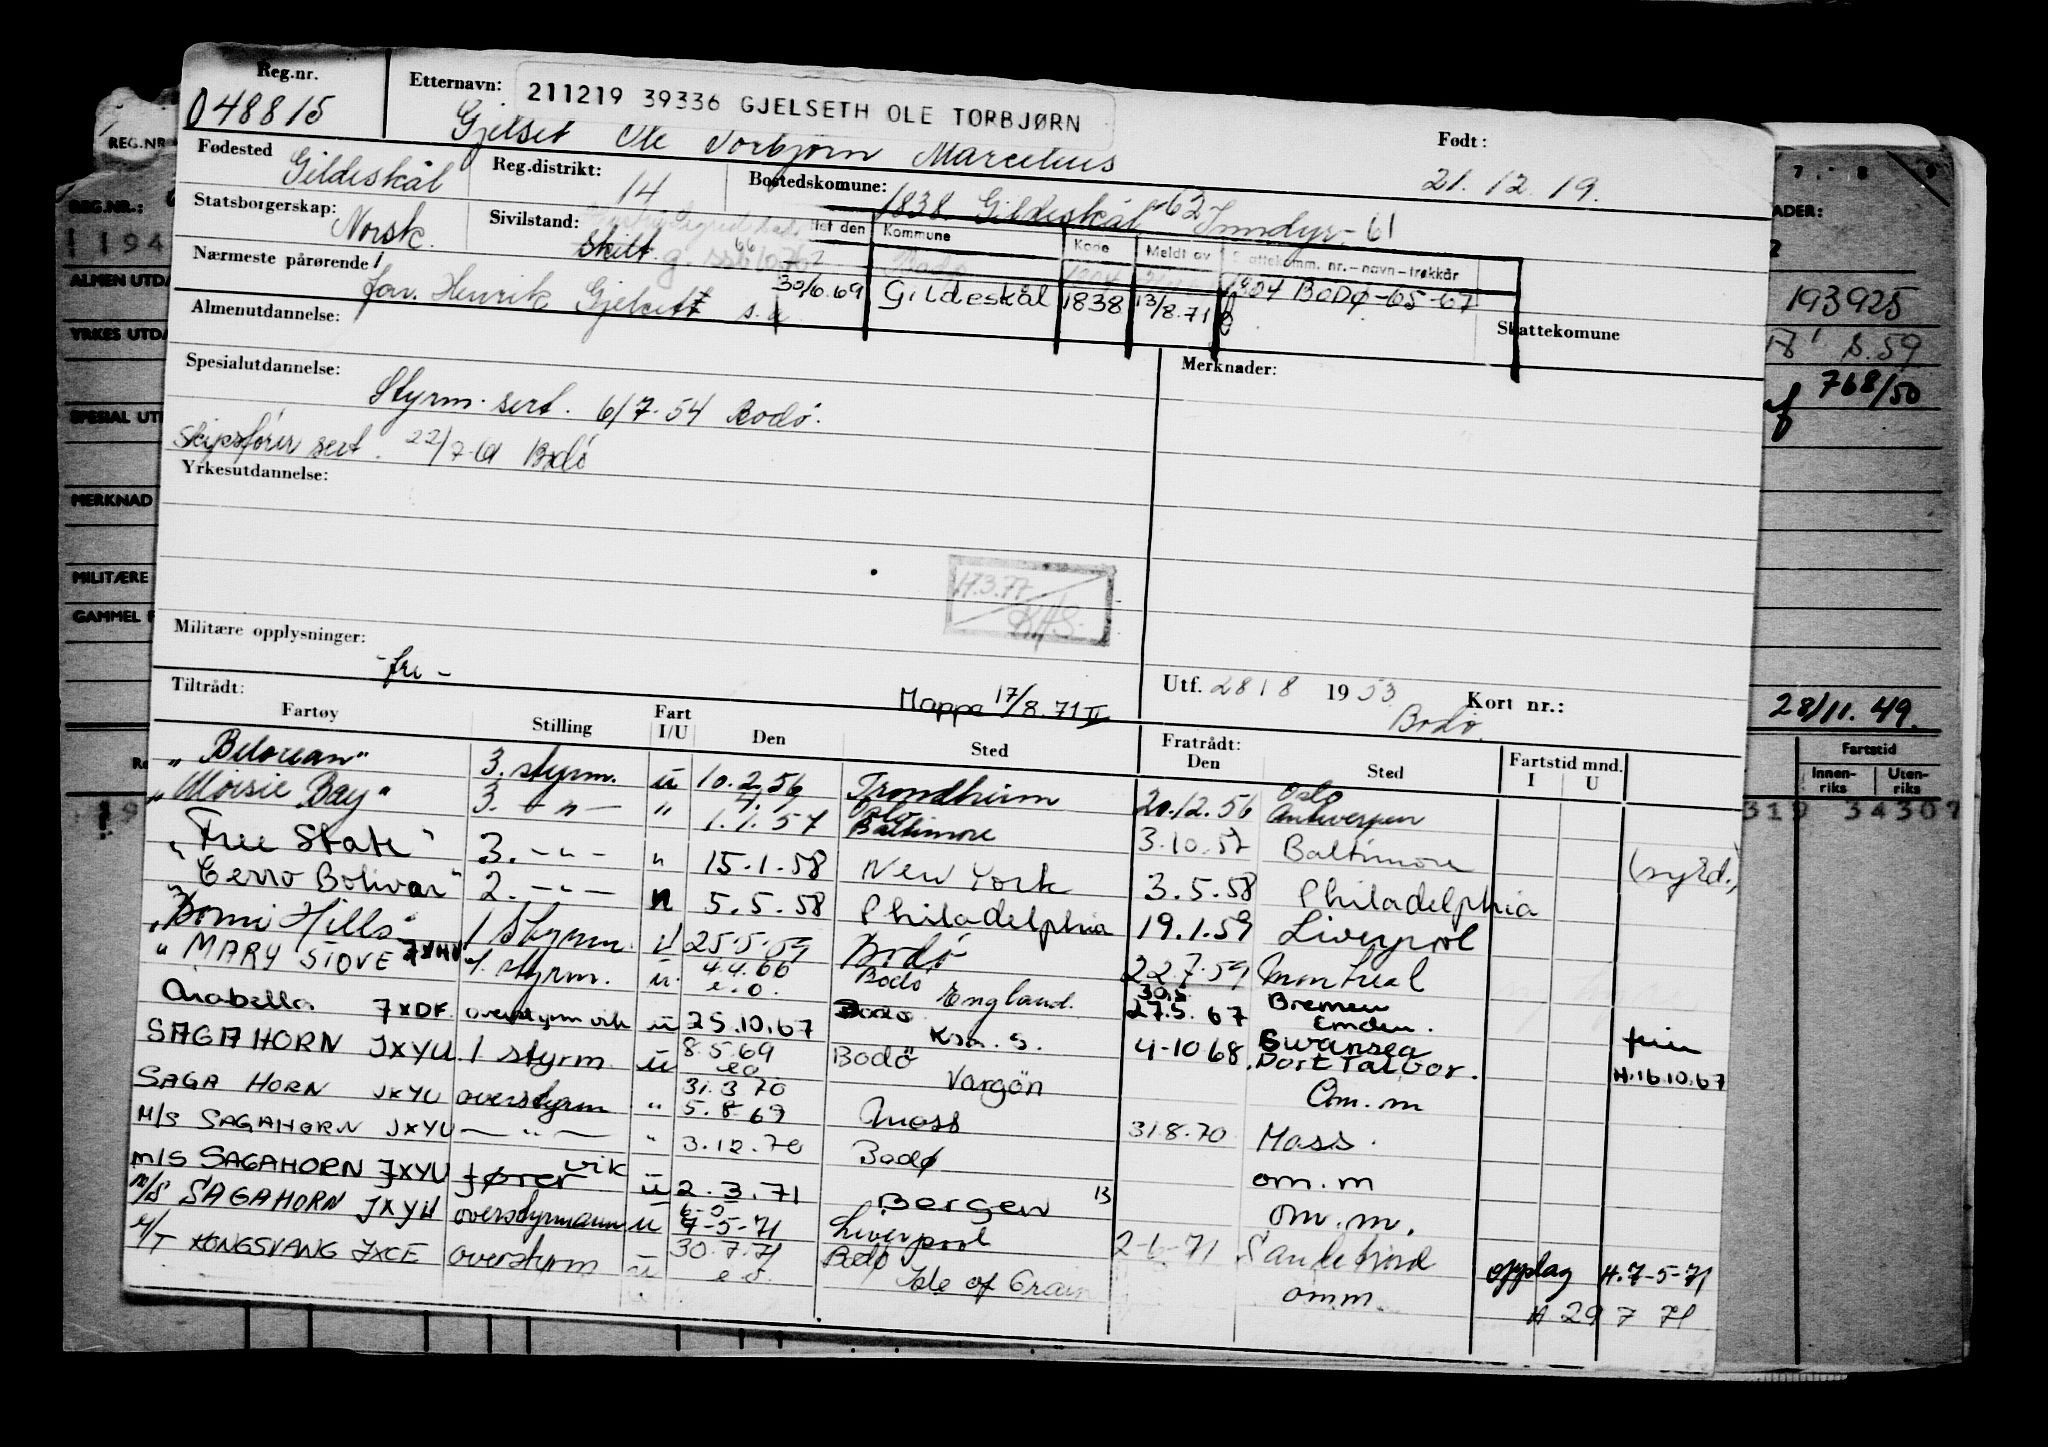 Reg.nr.
048815
Etternavn: 211219 39336 GJELSETH OLE TORBJØRN
Gjelset Ole Torbjørn Marcelius
Født:
21.12.19.
Fødested
Gildeskål
Reg.distrikt: 14
Bostedskomune: 1838 Gildeskål -62 Inndyr-61
Statsborgerskap: Norsk.
Sivilstand: skilt g.
Kommune Kode Meldt av Skattekomm. nr.-navn-trekkår
30/6.69 Gildeskål 1838 13/8.71 1904 BODØ-65-67
Nærmeste pårørende
Henrik
Almenutdannelse:
Skattekomune
Spesialutdannelse:
Merknader:
Styrm. sert. 6/7-54 Bodø.
Skipsfører sert. 22/7-61 Bodø
Yrkesutdannelse:
17.3.77
Militære opplysninger:
-fri-
Mappe 17/8.71 II
Utf. 28/8 1953 Bodø.
Kort nr.:
Tiltrådt:
Fartøy Stilling Fart I/U Den Sted Fratrådt: Den Sted Fartstid mnd. I U
3. styrm. u 10.2.56 Trondheim 20.12.56 Oslo Antwerpen
"Moisie Bay" 3. -"- " 1.1.57 Baltimore 3.10.57 Baltimore
"Free State" 3. -"- " 15.1.58 New York 3.5.58 Philadelphia
"Cerro Bolivar" 2. -"- " 5.5.58 Philadelphia 19.1.59 Liverpool
"Bomi Hills" 1 styrm. u 25.5.59 Bodø 22.7.59 Montreal
"MARY STOVE 1. styrm. u. 4.4.66 e.o. Bodø England. 27.5.67 Bremen Emden.
Arabella JXDF overstyrm vik u 25.10.67 Bodø 4-10 68 Swansea Port Talbor. H.16.10.67
SAGAHORN JXYU 1 styrm. u 8.5.69 eo Bodø Vargön Om.m
SAGA HORN JXYU overstyrm " 31.3.70 5.8.69 Moss 31.8.70 Moss.
M/S SAGAHORN JXYU -"- " 3.12.70 Bodø om.m
M/S SAGAHORN JXYU fører vik u 2.3.71 Bergen om.m.
M/S SAGAHORN JXYU overstyrmann u 7-5-71 Liverpool 2-6-71 Sandefjord opplag H.7-5-71
M/T KONGSVANG JXCE overstyrm u 30.7.71 e.o. Bodø Isle of Grain omm. H 29 7 71
REG.NR
REG.NR.:
ALMEN UTDA
YRKES UTDA
SPESIAL UT
MERKNAD
MILITÆRE
GAMMEL F
7 8 9
193925
768/50
28/11.49.
Fartstid
Innen-riks Uten-riks
34307